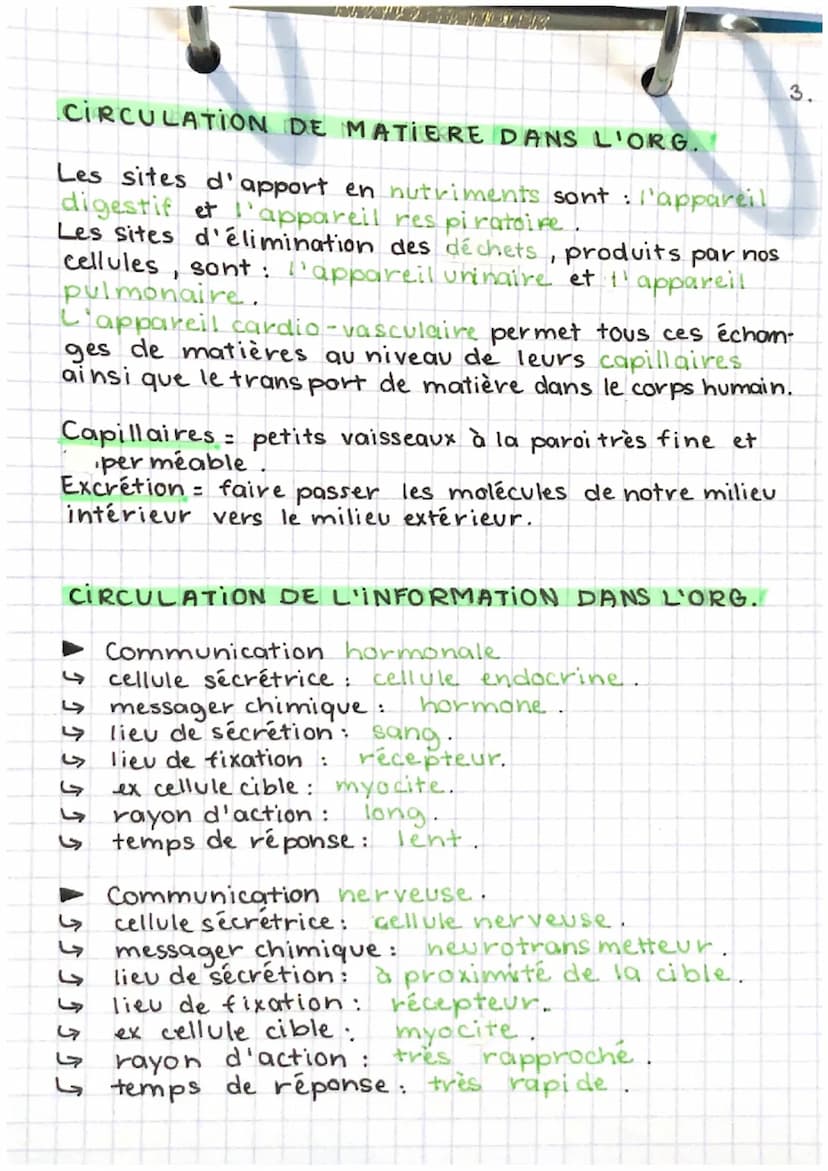 3.
CIRCULATION DE MATIERE DANS L'ORG.
Les sites d'apport en nutriments sont : l'appareil
digestif et l'appareil respiratoire.
Les sites d'élimination des déchets, produits par nos
cellules, sont : l'appareil urinaire et l'appareil
pulmonaire.
L'appareil cardio-vasculaire permet tous ces échan-
ges de matières au niveau de leurs capillaires
ainsi que le transport de matière dans le corps humain.
Capillaires = petits vaisseaux à la paroi très fine et
perméable.
Excrétion = faire passer les molécules de notre milieu
intérieur vers le milieu extérieur.
CIRCULATION DE L'INFORMATION DANS L'ORG.
► Communication hormonale
↳ cellule sécrétrice : cellule endocrine.
↳ messager chimique : hormone.
↳ lieu de sécrétion : sang.
↳ lieu de fixation : récepteur.
↳ ex cellule cible : myocite.
↳ rayon d'action : long.
↳ temps de réponse : lent.
► Communication nerveuse.
↳ cellule sécrétrice : cellule nerveuse.
↳ messager chimique : neurotransmetteur.
↳ lieu de sécrétion : à proximité de la cible.
↳ lieu de fixation : récepteur.
↳ ex cellule cible : myocite.
↳ rayon d'action : très rapproché.
↳ temps de réponse : très rapide.